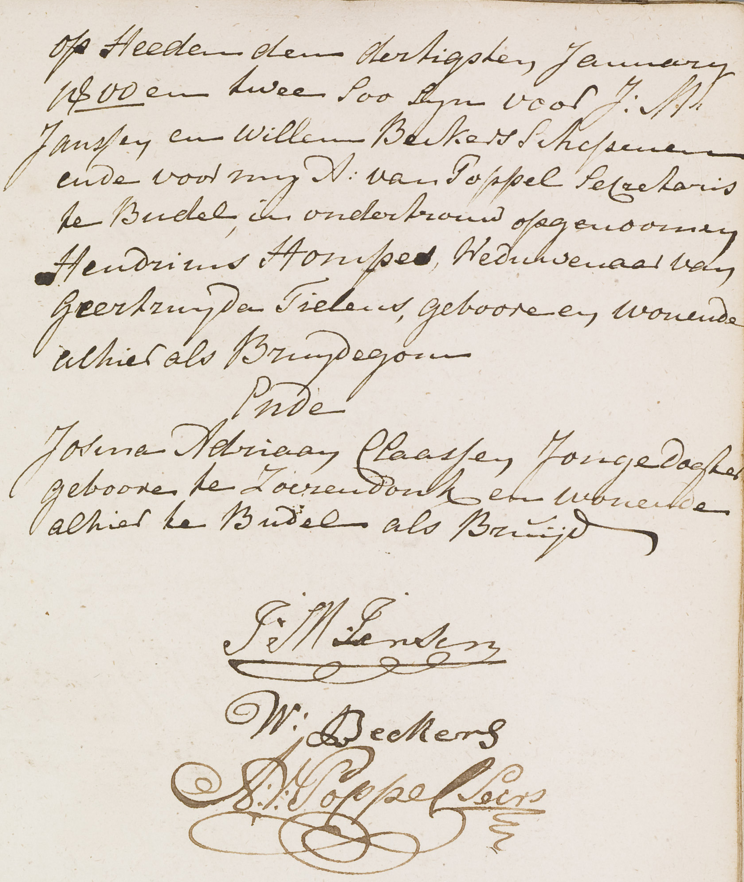 op Heeden den dertigsten January
1800 en twee Soo Syn voor J: M:
Janssen en Willem Beckers Schepenen
ende voor my A: van Poppel Secretaris
te Budel, in ondertrouw opgenoomen
Hendrinus Hompes, Weduwenaar van
Geertruyda Tielens, geboore en wonende
alhier als Bruydegom
Ende
Josina Adriaan Claassen Jonge Dogter
geboore te Zoerendonk en wonende
alhier te Budel als Bruijd
J: M Jensen
W: Beckers
A: V: Poppel Secrs